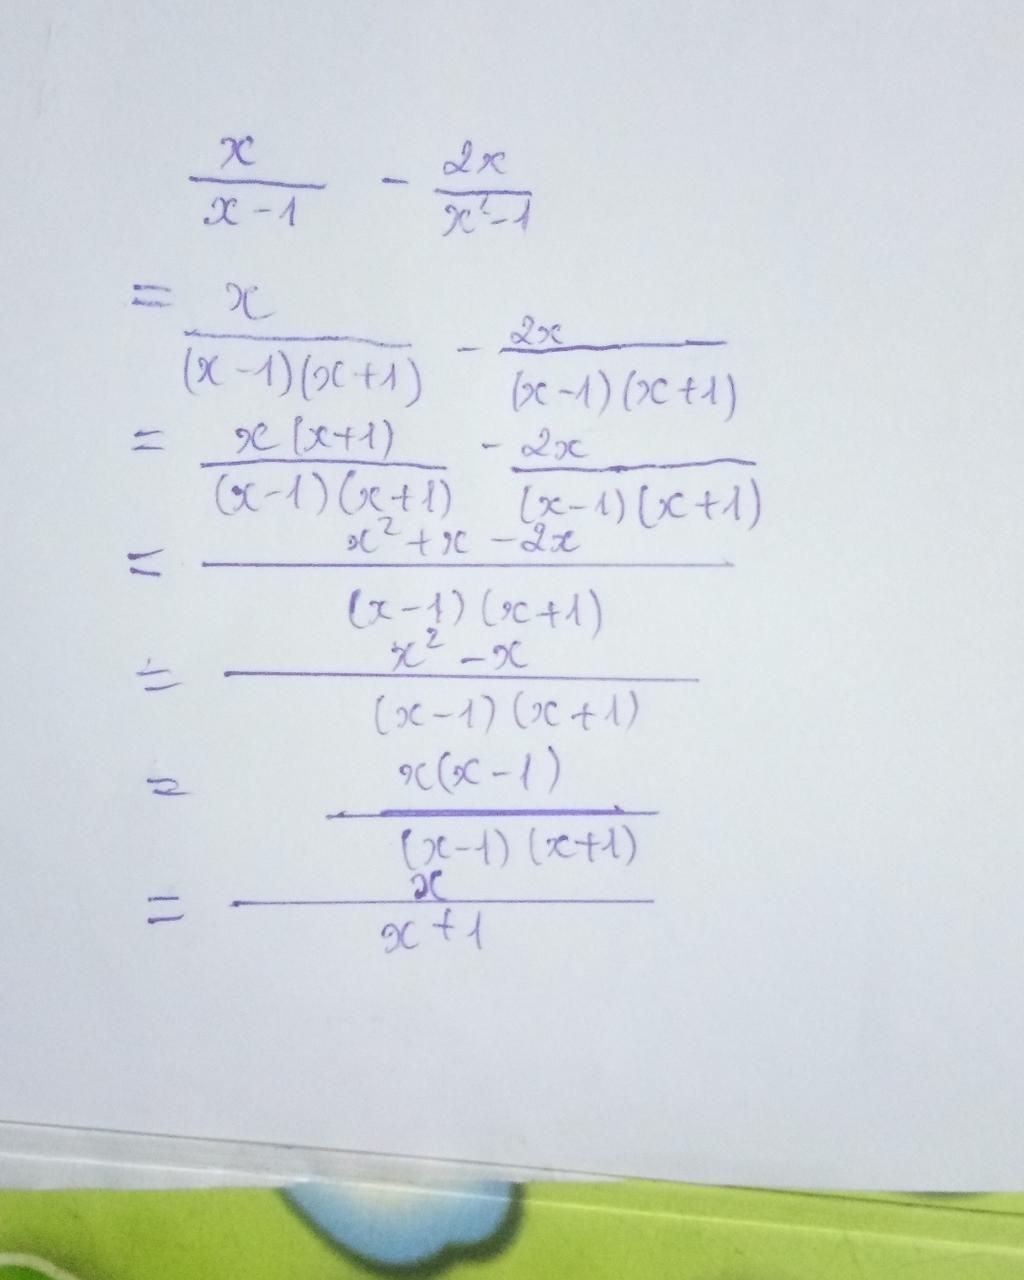 x/(x-1) - 2x/(x²-1)
= x/((x-1)(x+1)) - 2x/((x-1)(x+1))
= x(x+1)/((x-1)(x+1)) - 2x/((x-1)(x+1))
= (x²+x-2x)/((x-1)(x+1))
= (x²-x)/((x-1)(x+1))
= x(x-1)/((x-1)(x+1))
= x/(x+1)